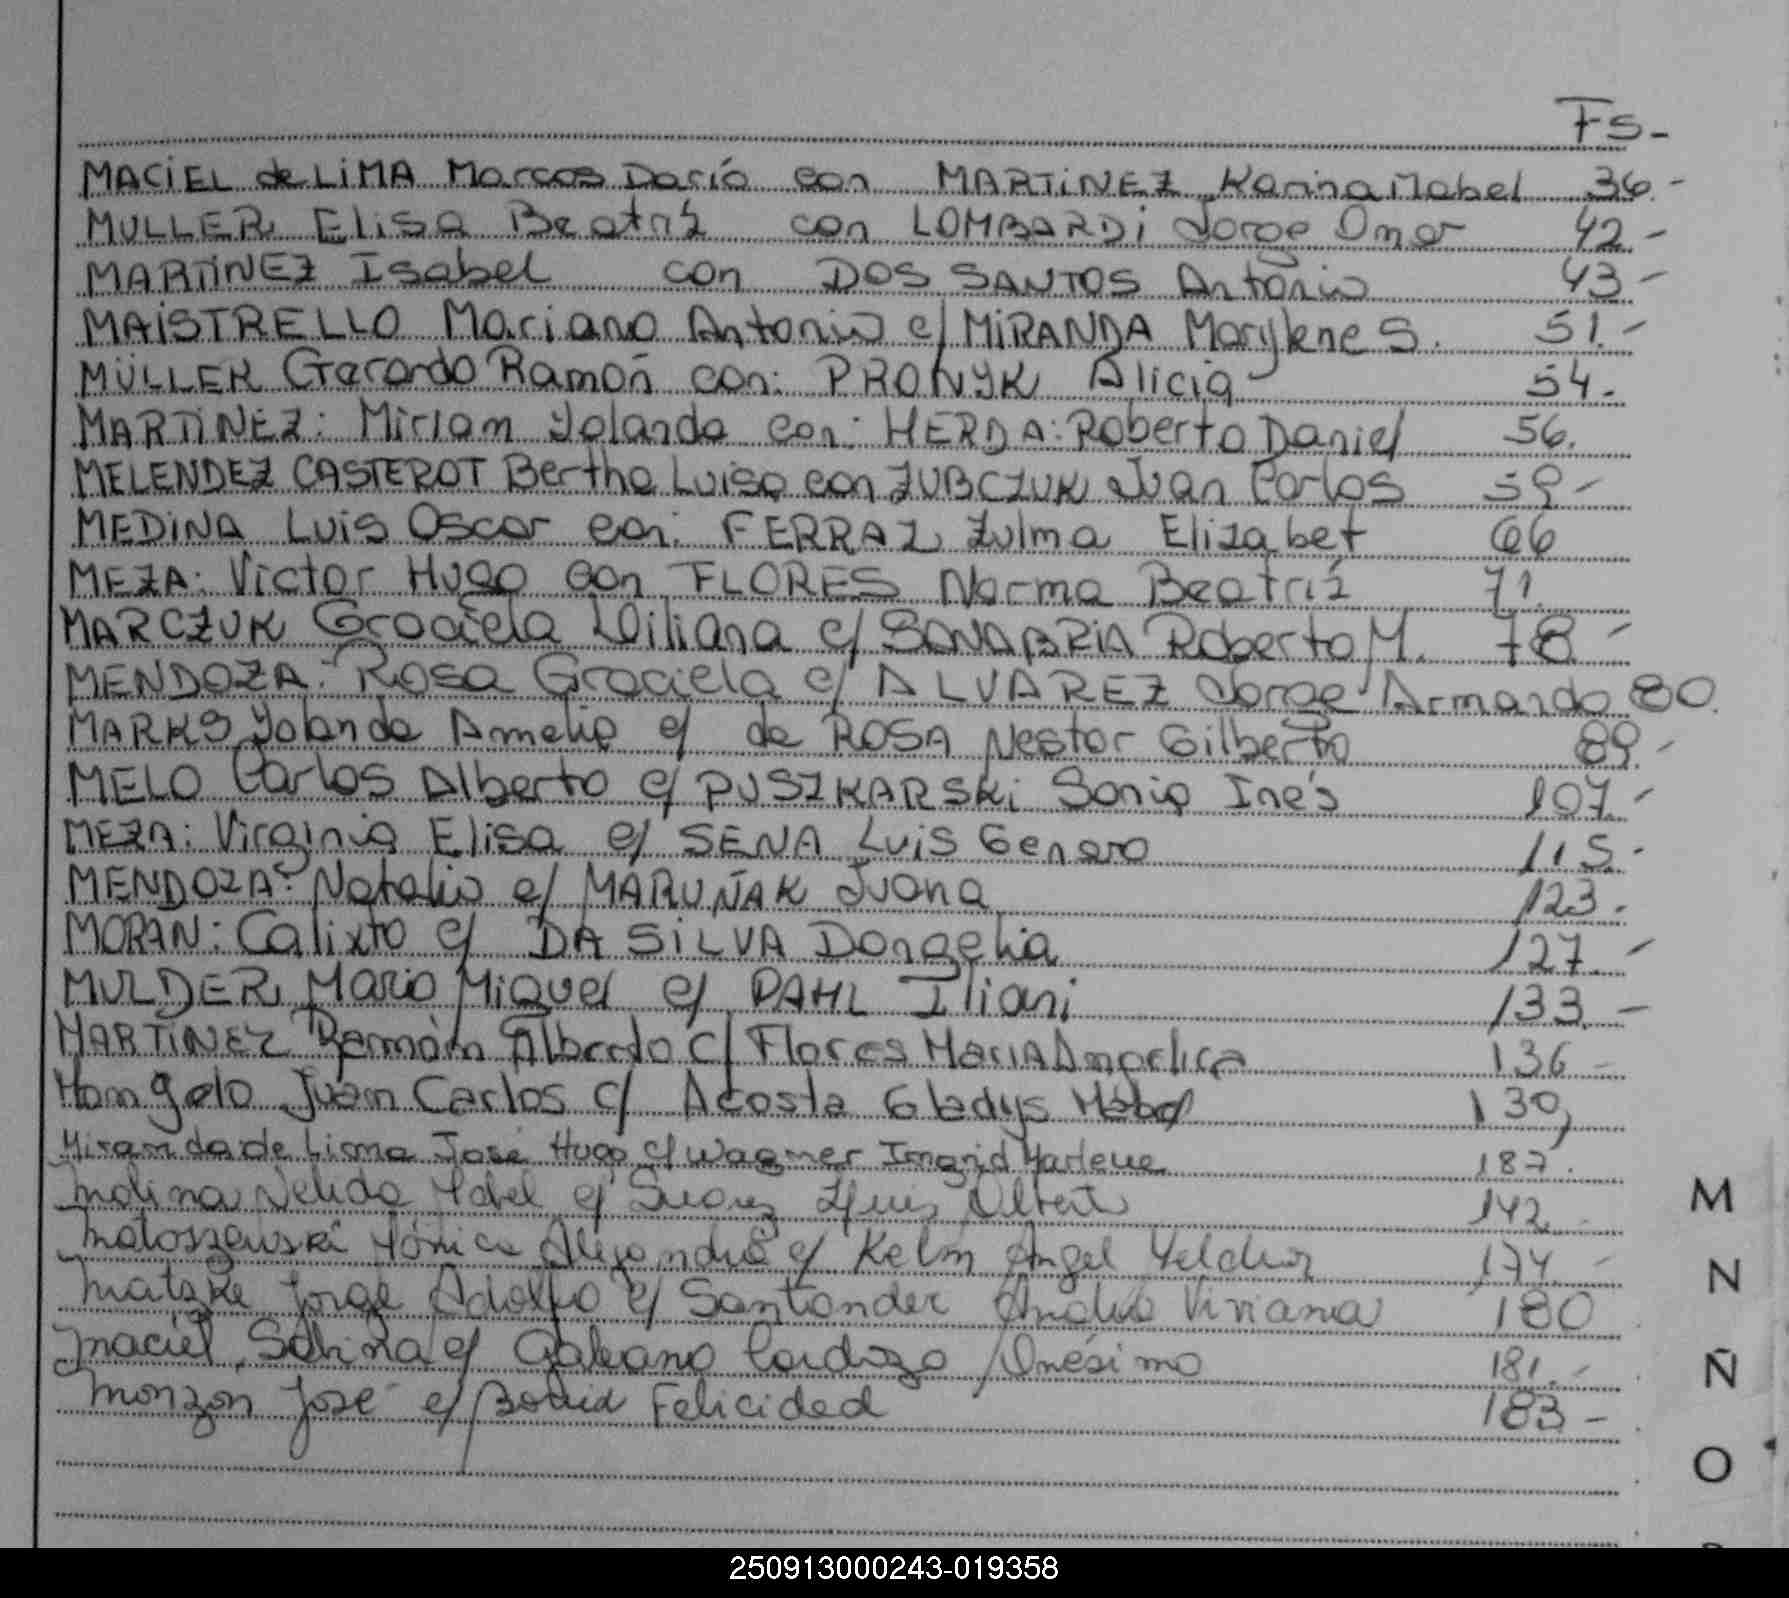 Fs-
MACIEL de LIMA Marcos Darío con MARTINEZ Karina Mabel 36-
MULLER Elisa Beatriz con LOMBARDI Jorge Omar 42-
MARTINEZ Isabel con DOS SANTOS Antonio 43-
MAISTRELLO Mariano Antonio c/ MIRANDA Marylene S. 51.-
MÜLLER Gerardo Ramón con: PRONYK Alicia 54.
MARTINEZ: Miriam Yolanda con: HERDA: Roberto Daniel 56.
MELENDEZ CASTEROT Bertha Luisa con ZUBCZUK Juan Carlos 59-
MEDINA Luis Oscar con: FERRAZ Zulma Elizabet 66
MEZA: Victor Hugo con FLORES Norma Beatriz 71.
MARCZUK Graciela Liliana c/ SANABRIA Roberto M. 78-
MENDOZA: Rosa Graciela c/ ALVAREZ Jorge Armando 80.
MARKS Yolanda Amelia c/ de ROSA Nestor Gilberto 89.-
MELO Carlos Alberto c/ PUSZKARSKI Sonia Inés 107.-
MEZA: Virginia Elisa c/ SENA Luis Genaro 115.-
MENDOZA: Natalio c/ MARUÑAK Juana 123.
MORAN: Calixto c/ DA SILVA Dorgelia 127.-
MULDER Mario Miguel c/ DAHL Iliani 133.-
MARTINEZ Ramón Alberto c/ Flores Maria Angelica 136-
Mongelo Juan Carlos c/ Acosta Gladys Mabel 130,
Miranda de Lima José Hugo c/ Wagner Ingrid Marlene 187.
Molina Nelida Mabel c/ Suarez Luis Alberto 142
Matoszewski Mónica Alejandra c/ Kelm Angel Melchor 174-
Matzke Jorge Adolfo c/ Santander Andrea Viviana 180
Maciel, Sabina c/ Galeano Cardozo Onésimo 181.-
Monzon José c/ Felicidad 183-
M
N
Ñ
O
250913000243-019358